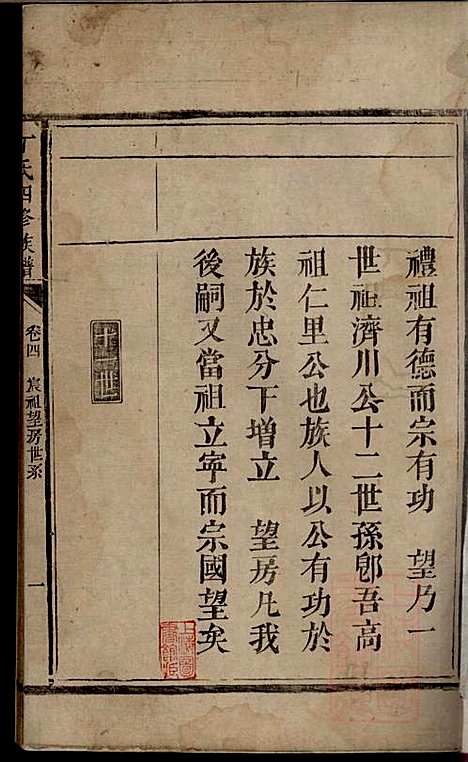 禮祖有德而宗有功　望乃一
世祖濟川公十二世孫即吾高
祖仁里公也族人以公有功於
族於忠分下增立　望房凡我
後嗣又當祖立寧而宗國望矣
丁氏四修族譜
卷四　宸祖望房世系
一